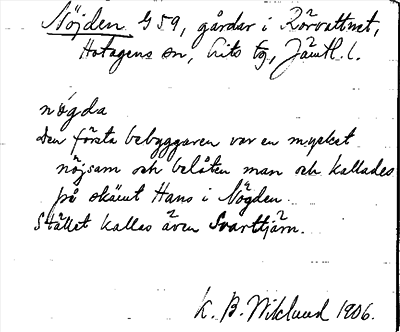 Nöjden G 59, gårdar i Rörvattnet,
Hotagens sn, Lits tg, Jämtl. l.
nögda
Den första bebyggaren var en mycket
nöjsam och belåten man och kallades
på skämt Hans i Nögden.
Stället kallas även Svarttjärn.
K. B. Wiklund 1906.